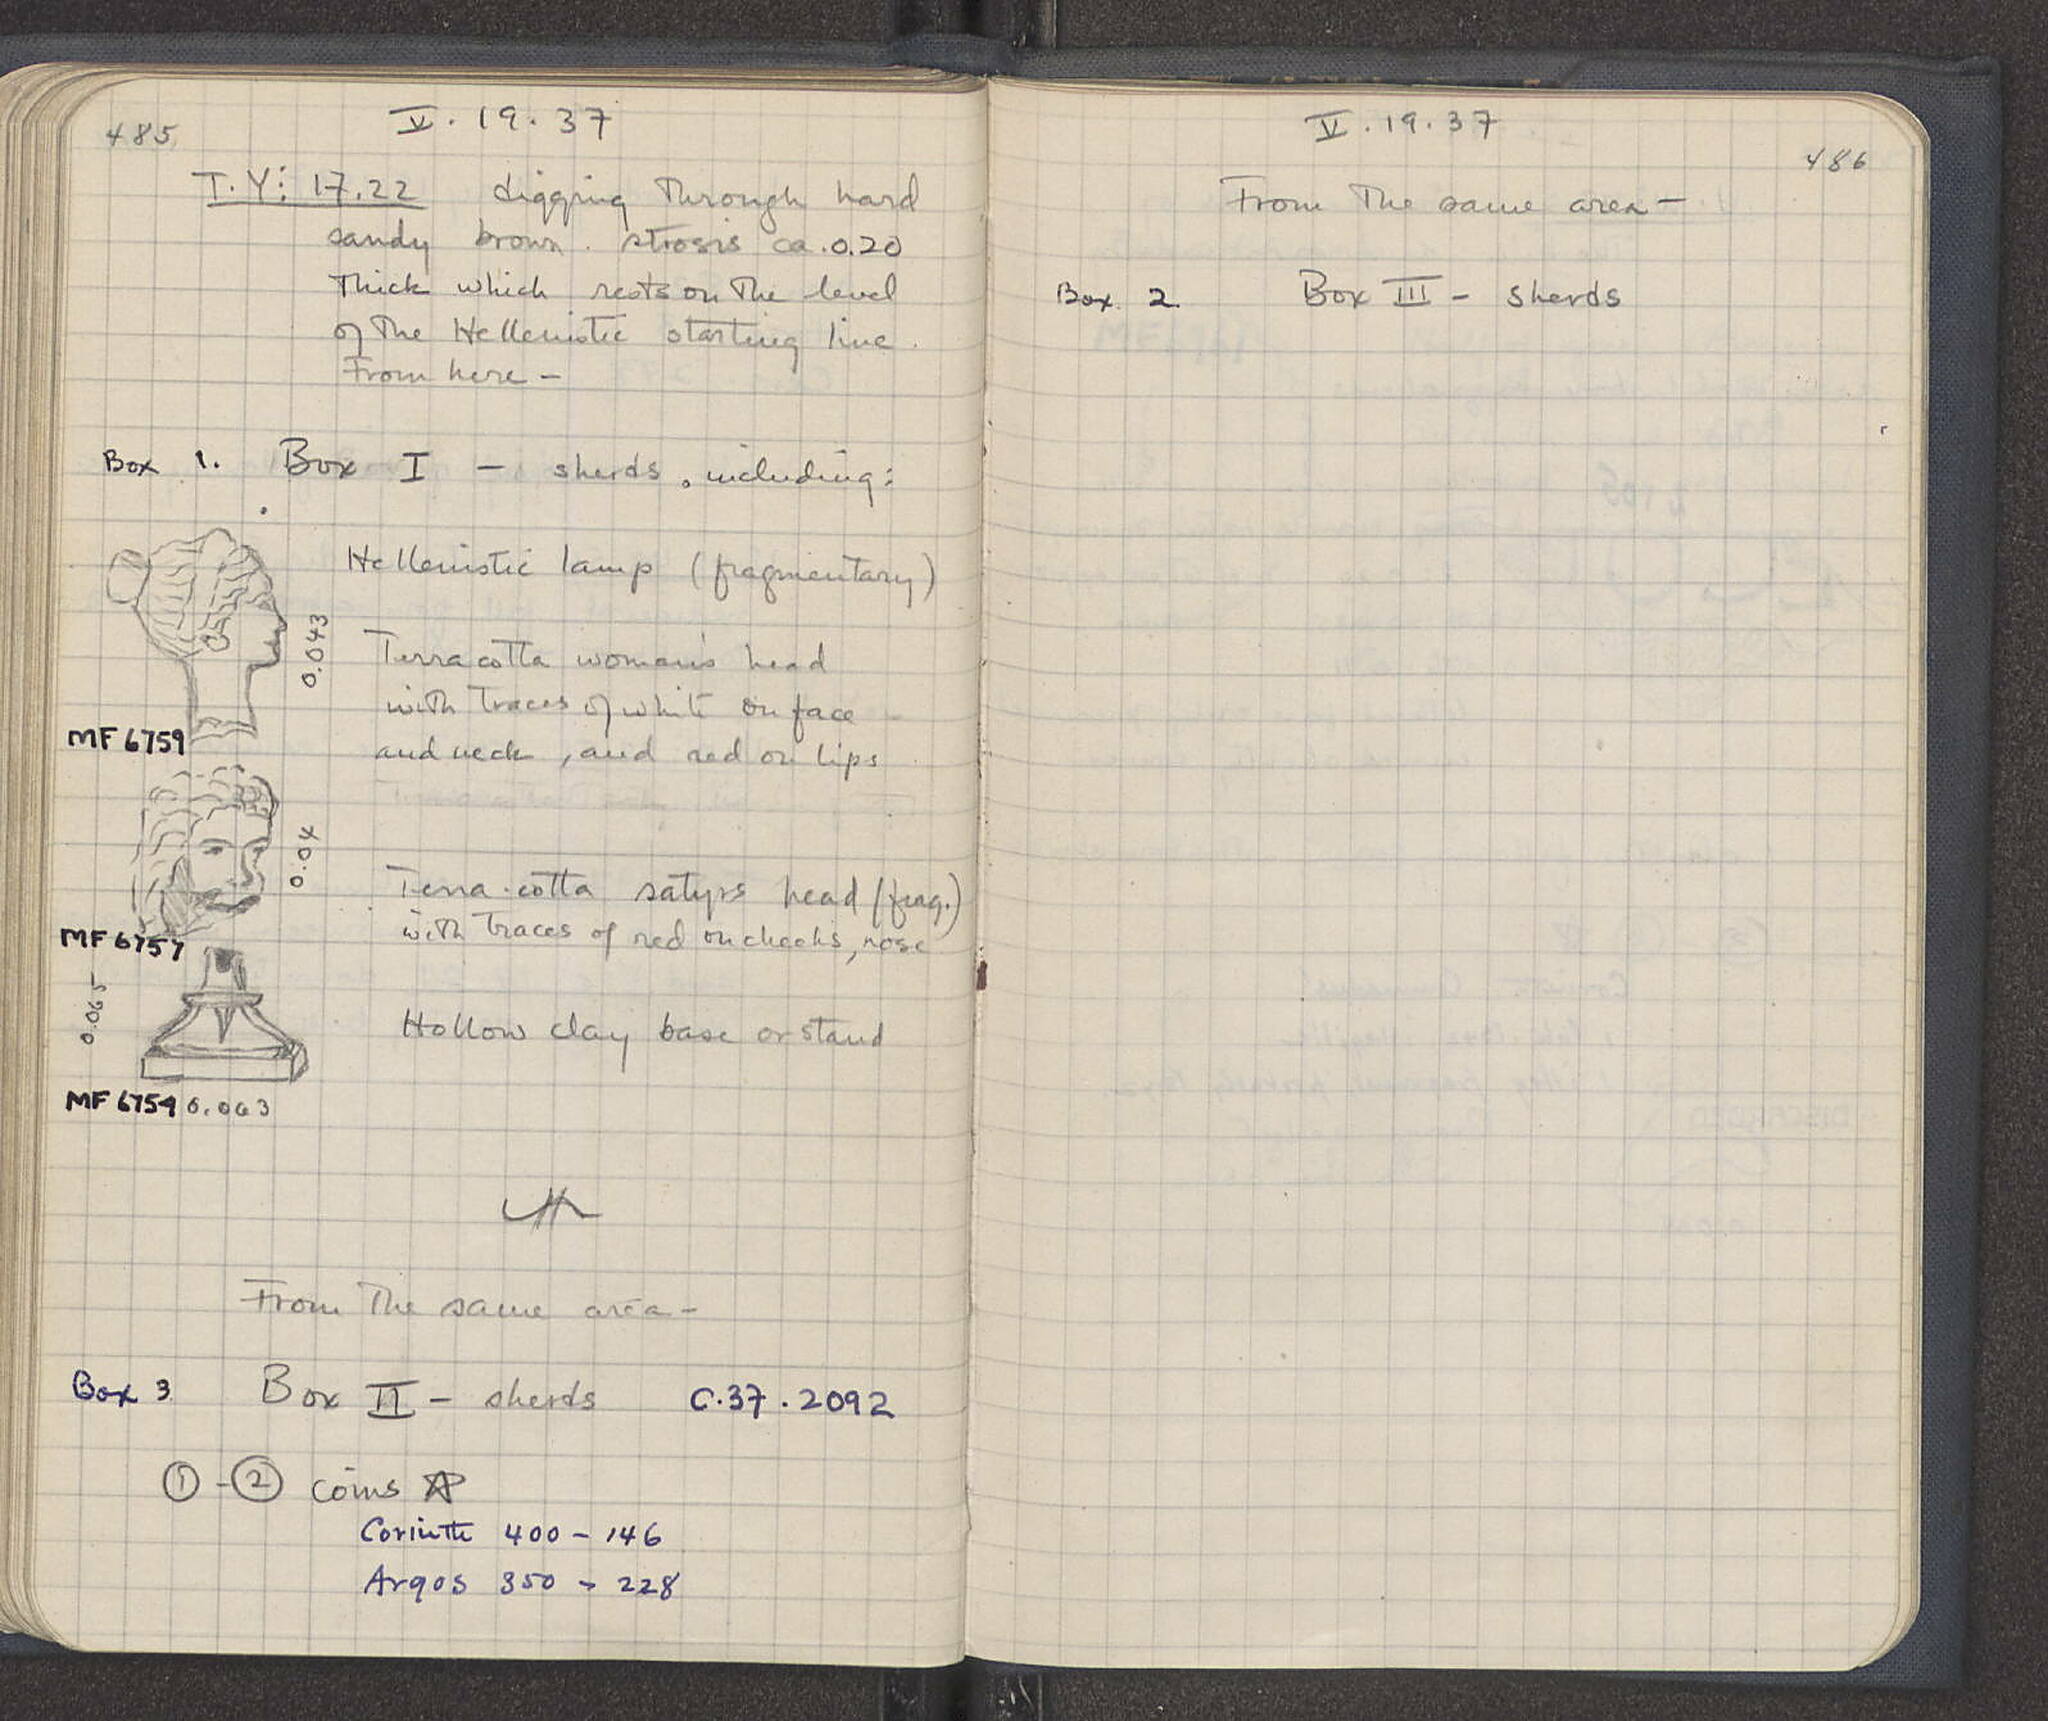 485
V. 19. 37
T.Y: 17.22 digging through hard
sandy brown. strosis ca. 0.20
thick which rests on the level
of the Hellenistic starting line.
From here —
Box 1. Box I — sherds, including:
Hellenistic lamp (fragmentary)
0.043
Terracotta woman's head
with traces of white on face
and neck, and red on lips
MF 6759
0.04
Terra-cotta satyrs head (frag.)
with traces of red on cheeks, nose
MF 6757
0.065
Hollow clay base or stand
MF 6754 0.063
From the same area —
Box 3 Box II — sherds C.37.2092
① - ② coins
Corinth 400 - 146
Argos 350 - 228
V. 19. 37
486
From the same area —
Box 2 Box III — sherds